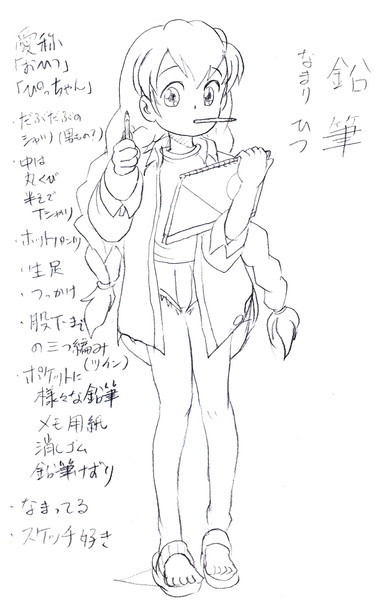 鉛筆
なまり ひつ
愛称
「おひつ」
「ぴっちゃん」
・だぶだぶの
シャツ(男もの?)
・中は
丸くび
半そで
Tシャツ
・ホットパンツ
・生足
・つっかけ
・股下まで
の三つ編み
(ツイン)
・ポケットに
様々な鉛筆
メモ用紙
消しゴム
鉛筆けずり
・なまってる
・スケッチ好き